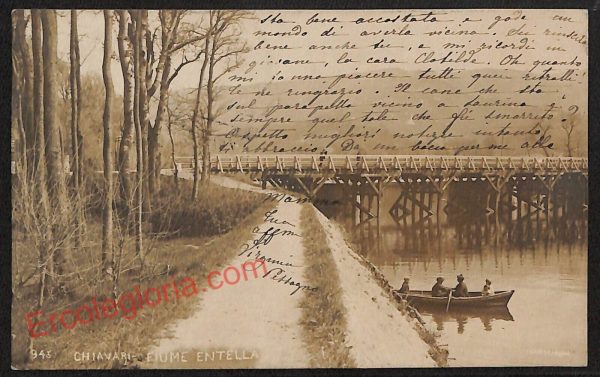 sta bene accostata e gode un
mondo di averla vicina. Tu rendi
bene anche tu, e mi ricordi un
giovane, la cara Clotilde. Oh quanto
mi fanno piacere tutti quei ritratti
te ne ringrazio. Il cane che sta
sul parapetto vicino a è
sempre quel tale che fu smarrito?
Aspetto migliori notizie intanto
ti abbraccio. Da un bacio per me alle
Mamma
tua
aff
Virginia
Ercolegloria.com
943 CHIAVARI - FIUME ENTELLA